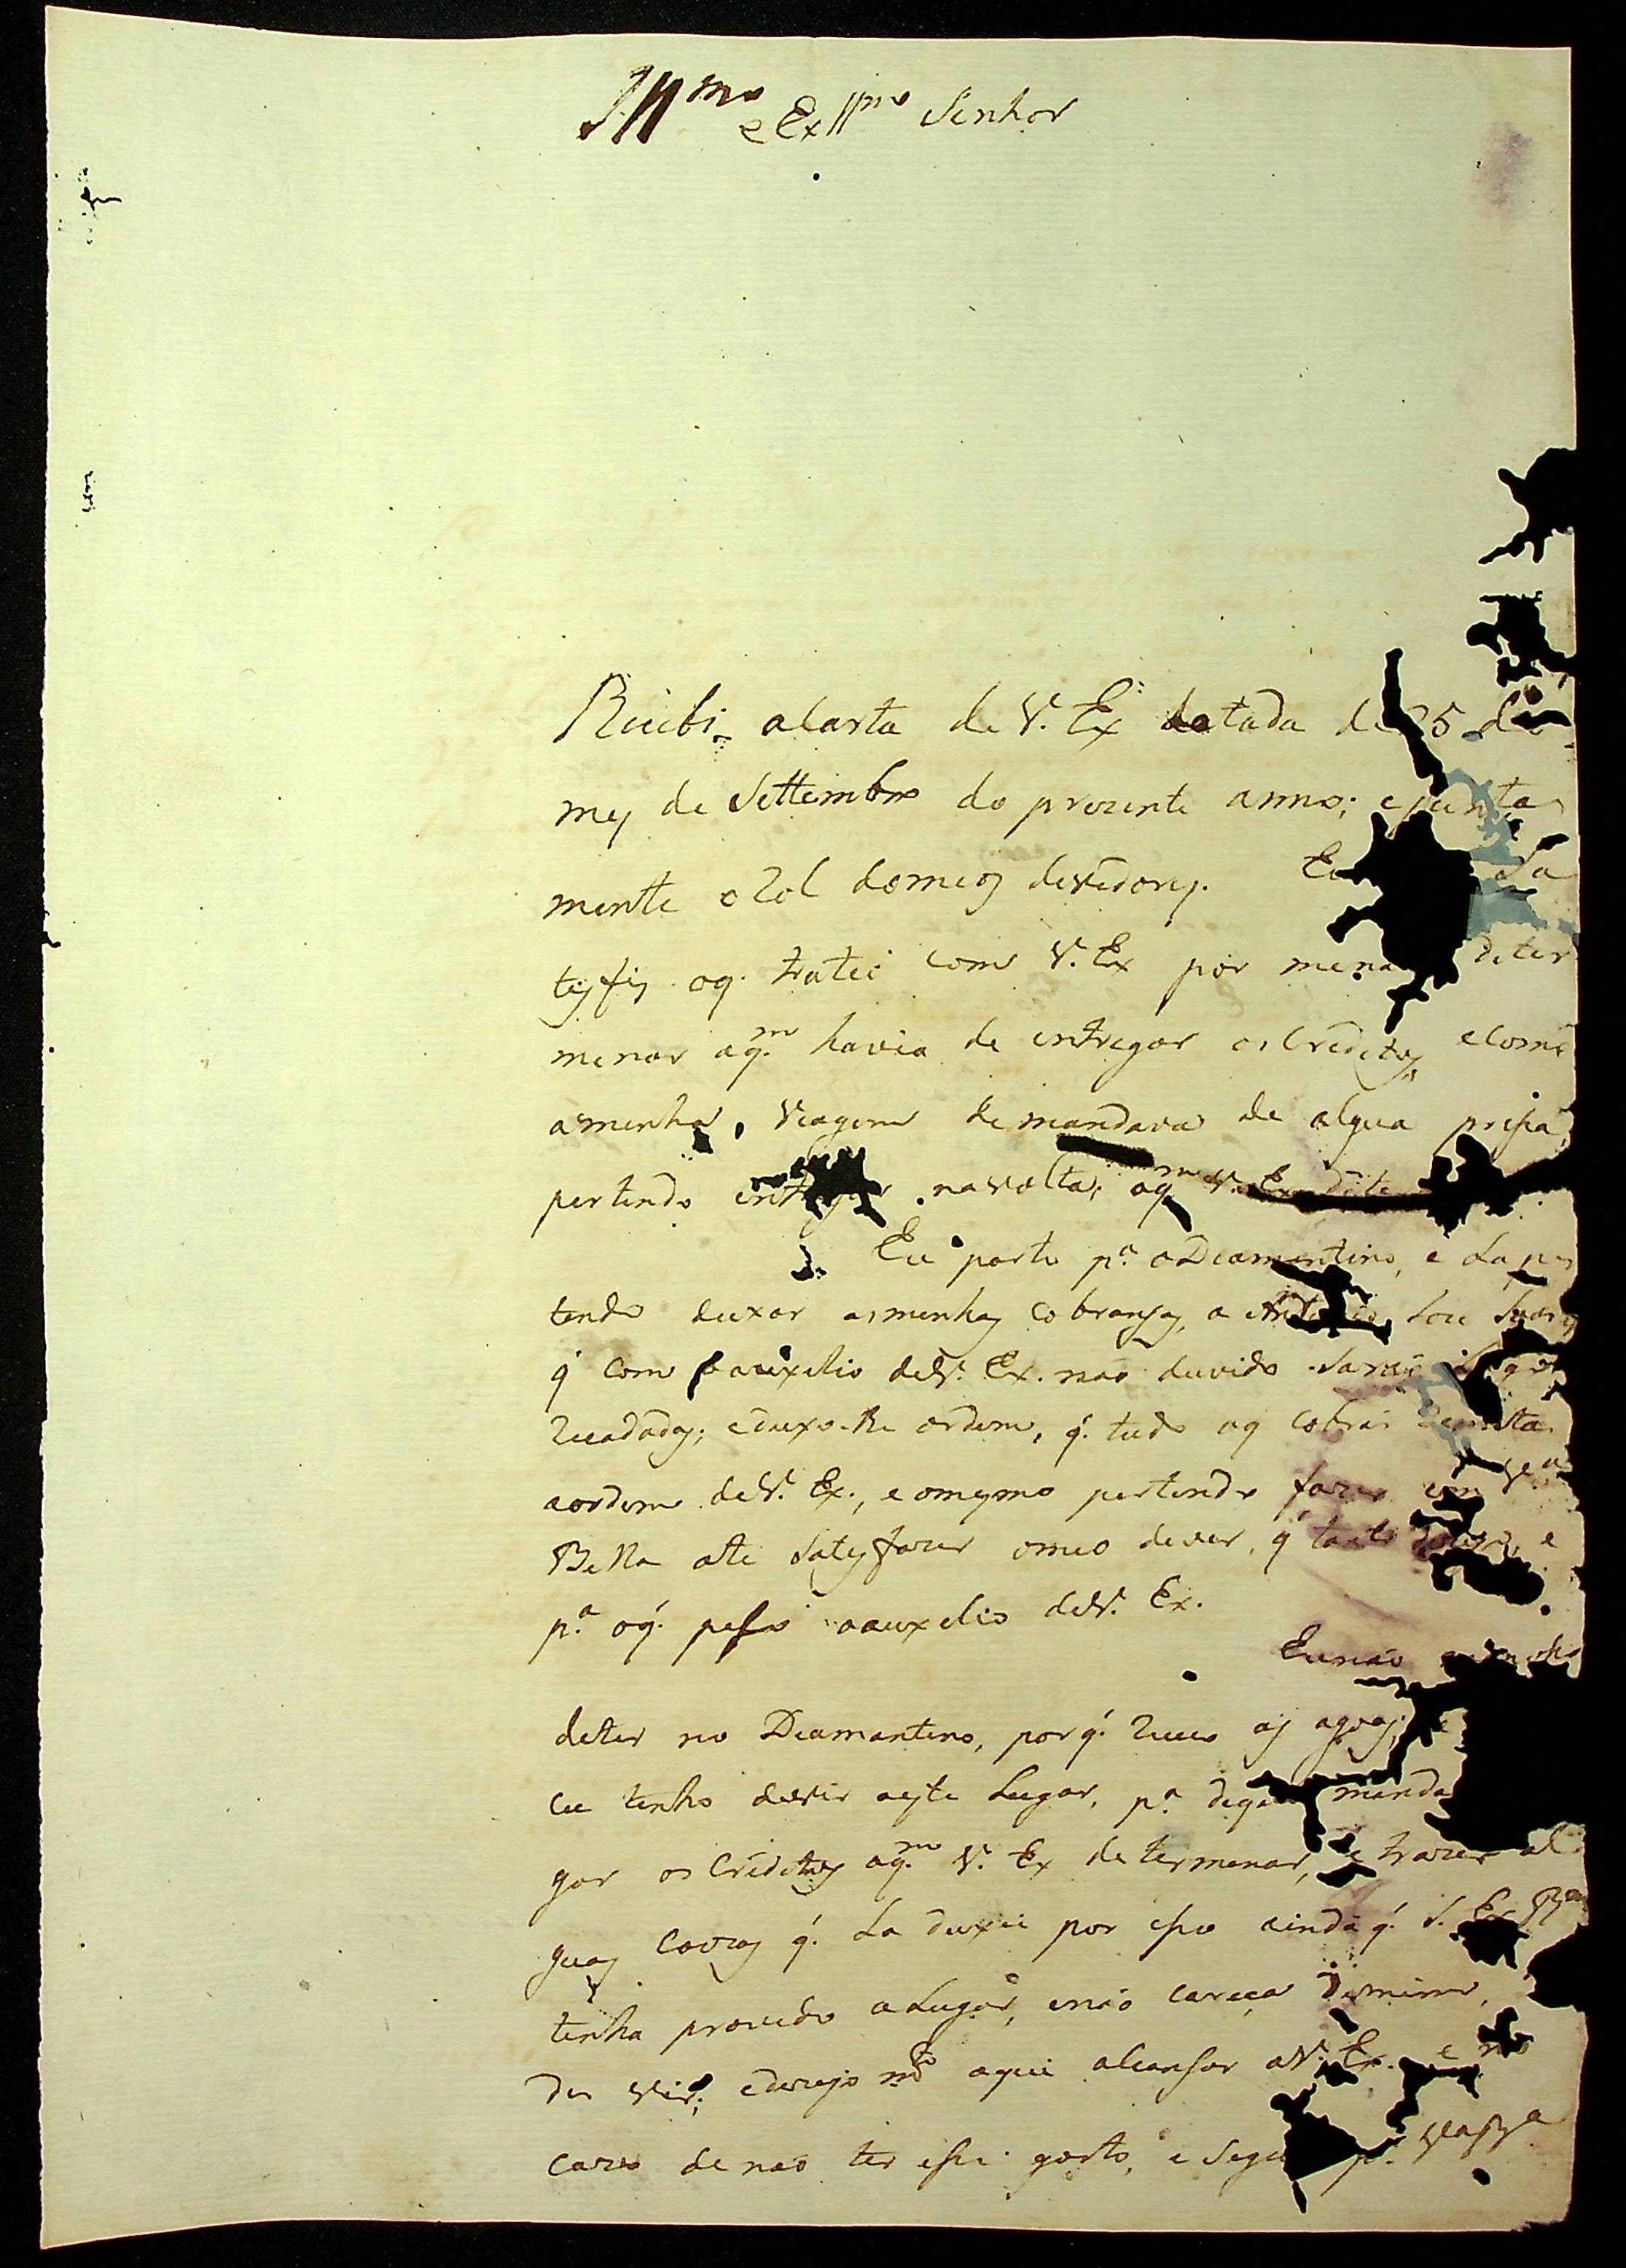 Illmo e Exmo Senhor
Recebi aCarta de V. Ex.ª datada de 25 do
mez de Settembro do prezente anno; e junta
mente o Rol domeos devedores. Sa
tisfiz oq. tratei com V. Ex por mena deter
menar aq.m havia de entregar os Creditos, ecomo
aminha viagem demandava de algua presa,
pertendo entregar navolta, aq.m V. Ex dete
Eu parto p.a oDiamantino, e La per
tendo deixar asminhas cobransas, a Antonio Soares
q' com oauxelio deV. Ex. não duvido
recadadas; edeixo-lhe ordem, q'. tudo oq cobrar
aordem deV. Ex., eomesmo pertendo fazer em V.a
Bella ate Satisfazer omeo dever, q' tanto dezejo, e
p.a oq'. peso oauxelio deV. Ex.
Eunão
deter no Diamantino, porq'. receio as agoas;
eu tenho devir aeste Lugar, p.a manda
gar os Creditos aq.m V. Ex determenar, e trazer al
guas Couzas q'. La deixei por isso ainda q'. S. Ex R.ma
tenha provido oLugar, enão careça demim,
dei vir; edezejo m.to aqui alcansar aV. Ex. e no
cazo denão ter esse gosto, e Segu p.